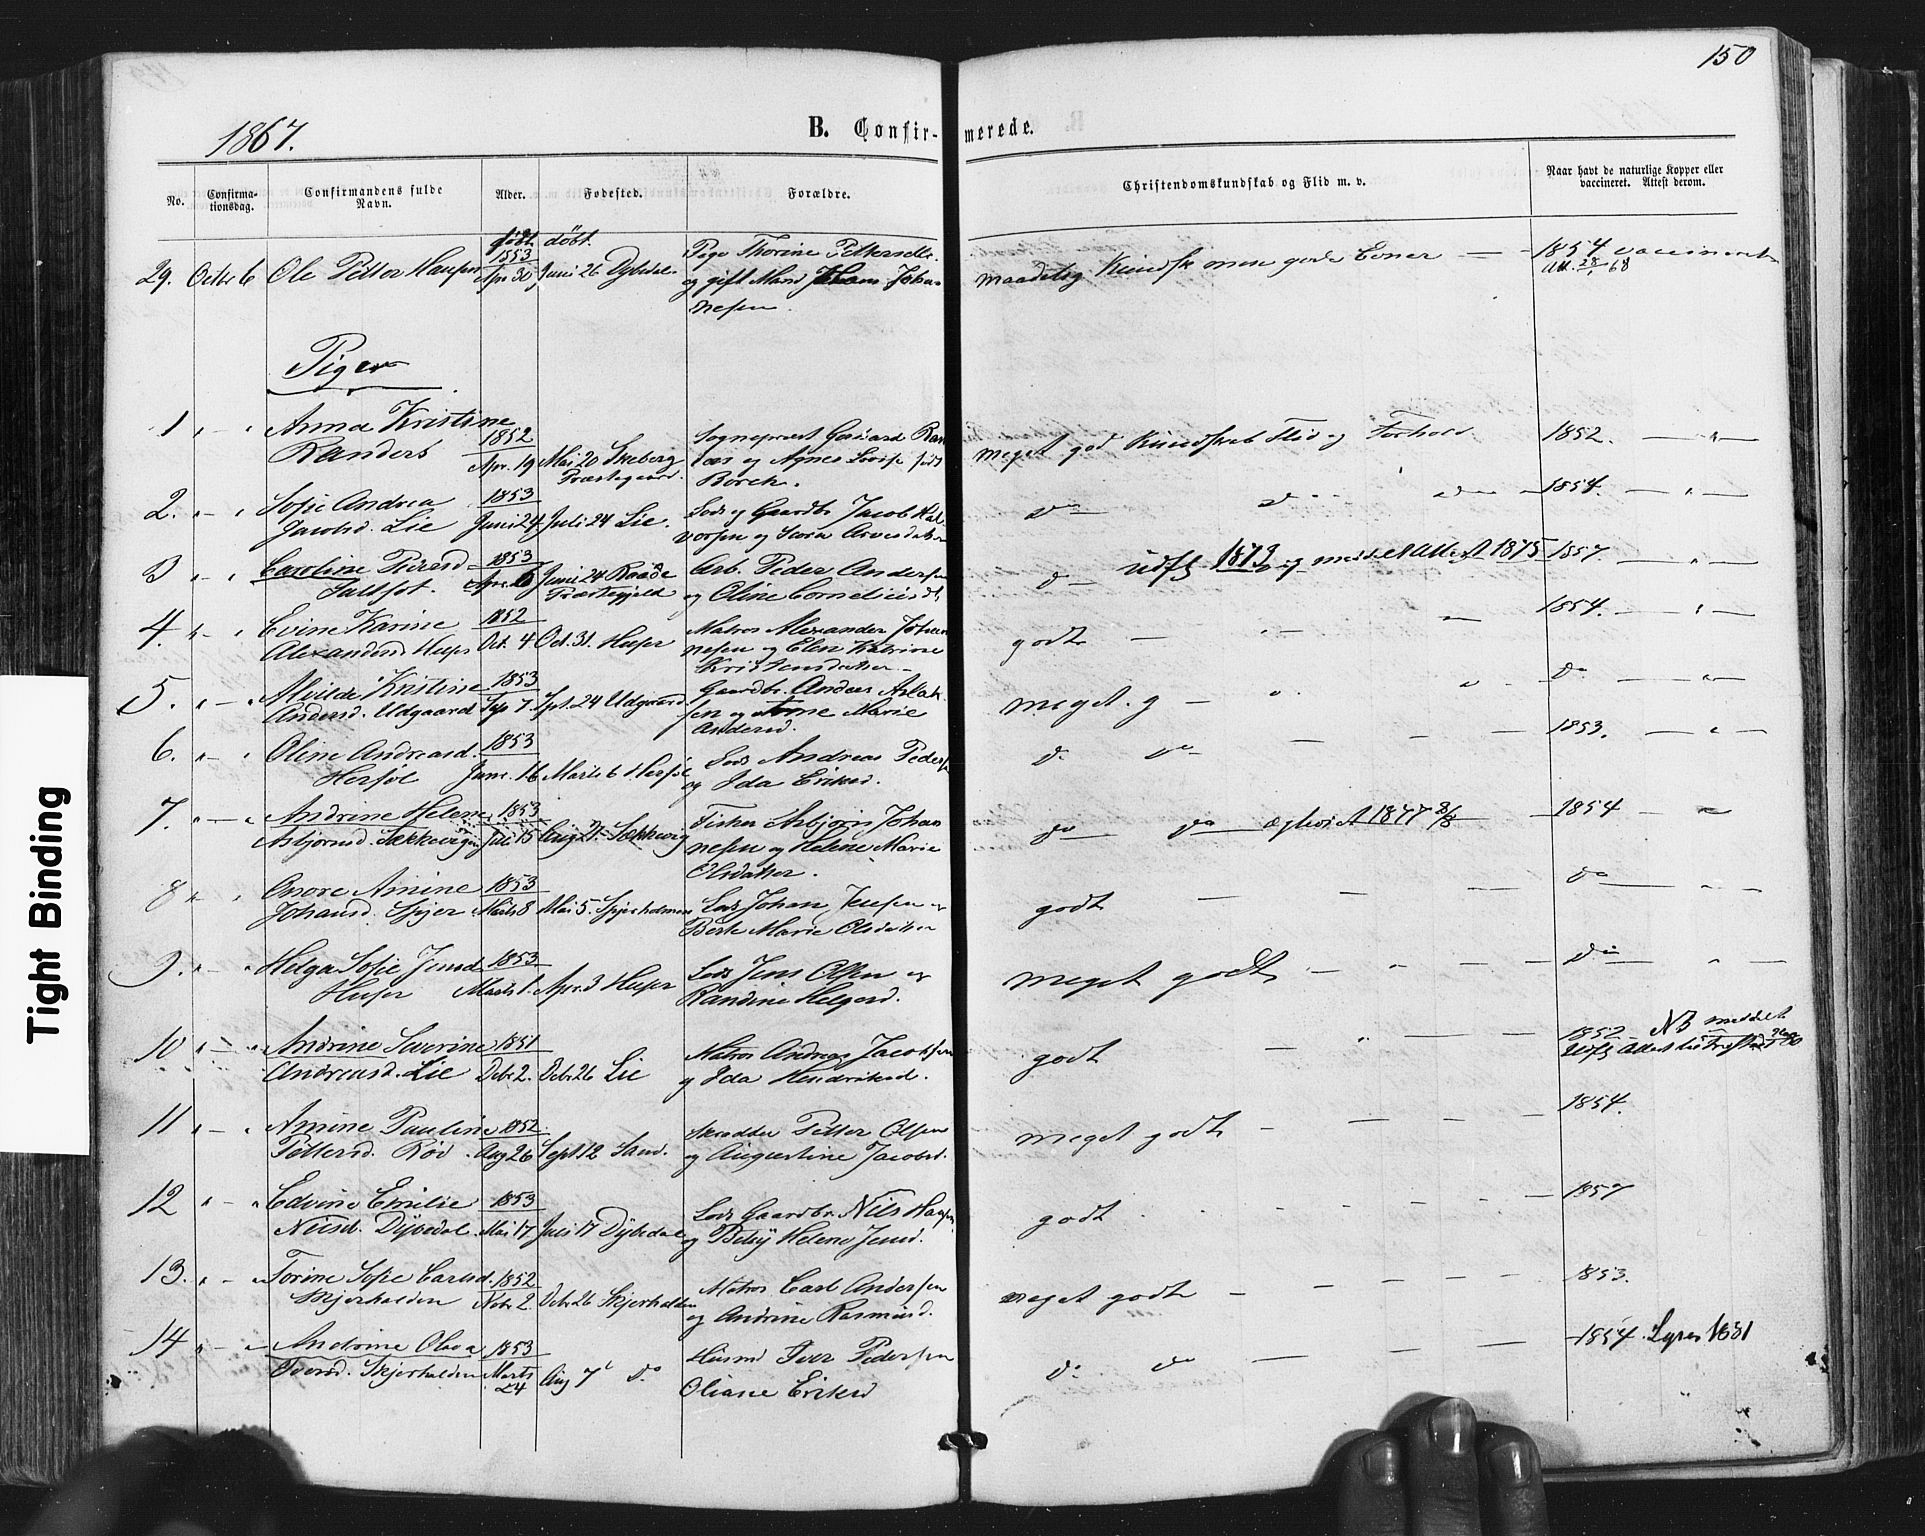 150
1867.
B. Confirmerede.
No.
Confirmationsdag.
Confirmandens fulde Navn.
Alder.
Fødested.
Forældre.
Christendomskundskab og Flid m. v.
Naar havt de naturlige Kopper eller vaccineret. Attest derom.
født døbt
29. Octbr 6 Ole Petter Hansen 1853 Apr 30 Juni 26 Dybedal Pige Thorine Pettersdtr
og gift Mand Johan-
nesen.
maadelig Kundsk men gode Evner — 1854 vaccineret
Att. 28/1 68
Piger
1 " — " Anna Kristine
Randers 1852 Apr. 19 Mai 20 Skeberg
Præstegaard.
Sognepræst Ran-
ders og Agnes Lovise født
Borch.
meget god Kundskab Flid og Forhold 1852. — " —
2. " — " Sofie Andrea
Jacobsd. Lie 1853 Juni 24 Juli 24 Lie.
Lods og Gaardbr Jacob Hal-
vorsen og
do do 1854. — " —
3 " — " Caroline Pedersd
1853 Apr. 6 Juni 24 Raade
Præstegjeld
Arb. Peder Andersen
og Oline Corneliusdt.
do udfl 1873 og meddelt Attest 1875 1857. — " —
4. " — " Evine Karine
Alexandersd Huser 1852 Oct. 4 Oct. 31. Huser
Matros Alexander Johan-
nesen og Elen Katrine
Kristensdatter
godt — 1854. — " —
5. " — " Alvilde Kristine
Andersd. Udgaard 1853 Sept. 24 Udgaard
Gaardbr. Anders Aslak-
sen og Anne Marie
Andersd.
meget g — do — " —
6. " — " Oline Andreasd.
Herføl 1853 16 Marts 6 Herføl
Lods Andreas Peders
og Ida Eriksd.
do do — 1853. — " —
7. " — " Andrine Helene
Asbjørnsd. Sækkevigen 1853 Juli 15 Aug 21 Sækkevig
Fisker Asbjørn Johan-
nesen og Helene Marie
Olsdatter.
do do — ægteviet 1877 8/8 — 1854 — "
8 " — " Amine
Johansd. Spjær 1853 Marts 8 Mai 5. Spjærholmen
Lods Johan Jensen og
Berte Marie Olsdatter
godt — do — " —
9. " — " Helga Sofie Jensd
Huser 1853 Marts 1. Apr. 3 Huser
Lods Jens Olsen og
Randine Helgesd.
meget godt — do — " —
10 " — " Andrine Severine
Andreasd. Lie 1851 Debr 2. Debr 26 Lie
Matros Andreas Jacobsen
og Ida Hendriksd.
godt — 1852 — NB meddelt
Udfl Attest
11 " — " Amine Pauline
Pettersd. Røv 1852 Aug 26 Sept 12 Sand.
Skrædder Petter Olsen
og Augustine Jacobsd.
meget godt — 1854.
12 " — " Edvine Emilie
Nilsd. Dybedal 1853 Mai 17 Juli 17 Dybedal
Lods Gaardbr. Nils Hansen
og Helene Jensd.
godt — 1857
13. " — " Torine Sofie Carlsd.
Skjærhalden 1852 Nobr 2. Debr 26 Skjærhalden
Matros Carl Andersen
og Andrine Rasmusd.
meget godt — 1853.
14 " — " Andrine Olava
Iversd. Skjærhalden 1853 Marts 24 Aug 7 do
Husmd Iver Pedersen
Oliane Eriksd
do do — 1854. Lyses 1881
Tight Binding